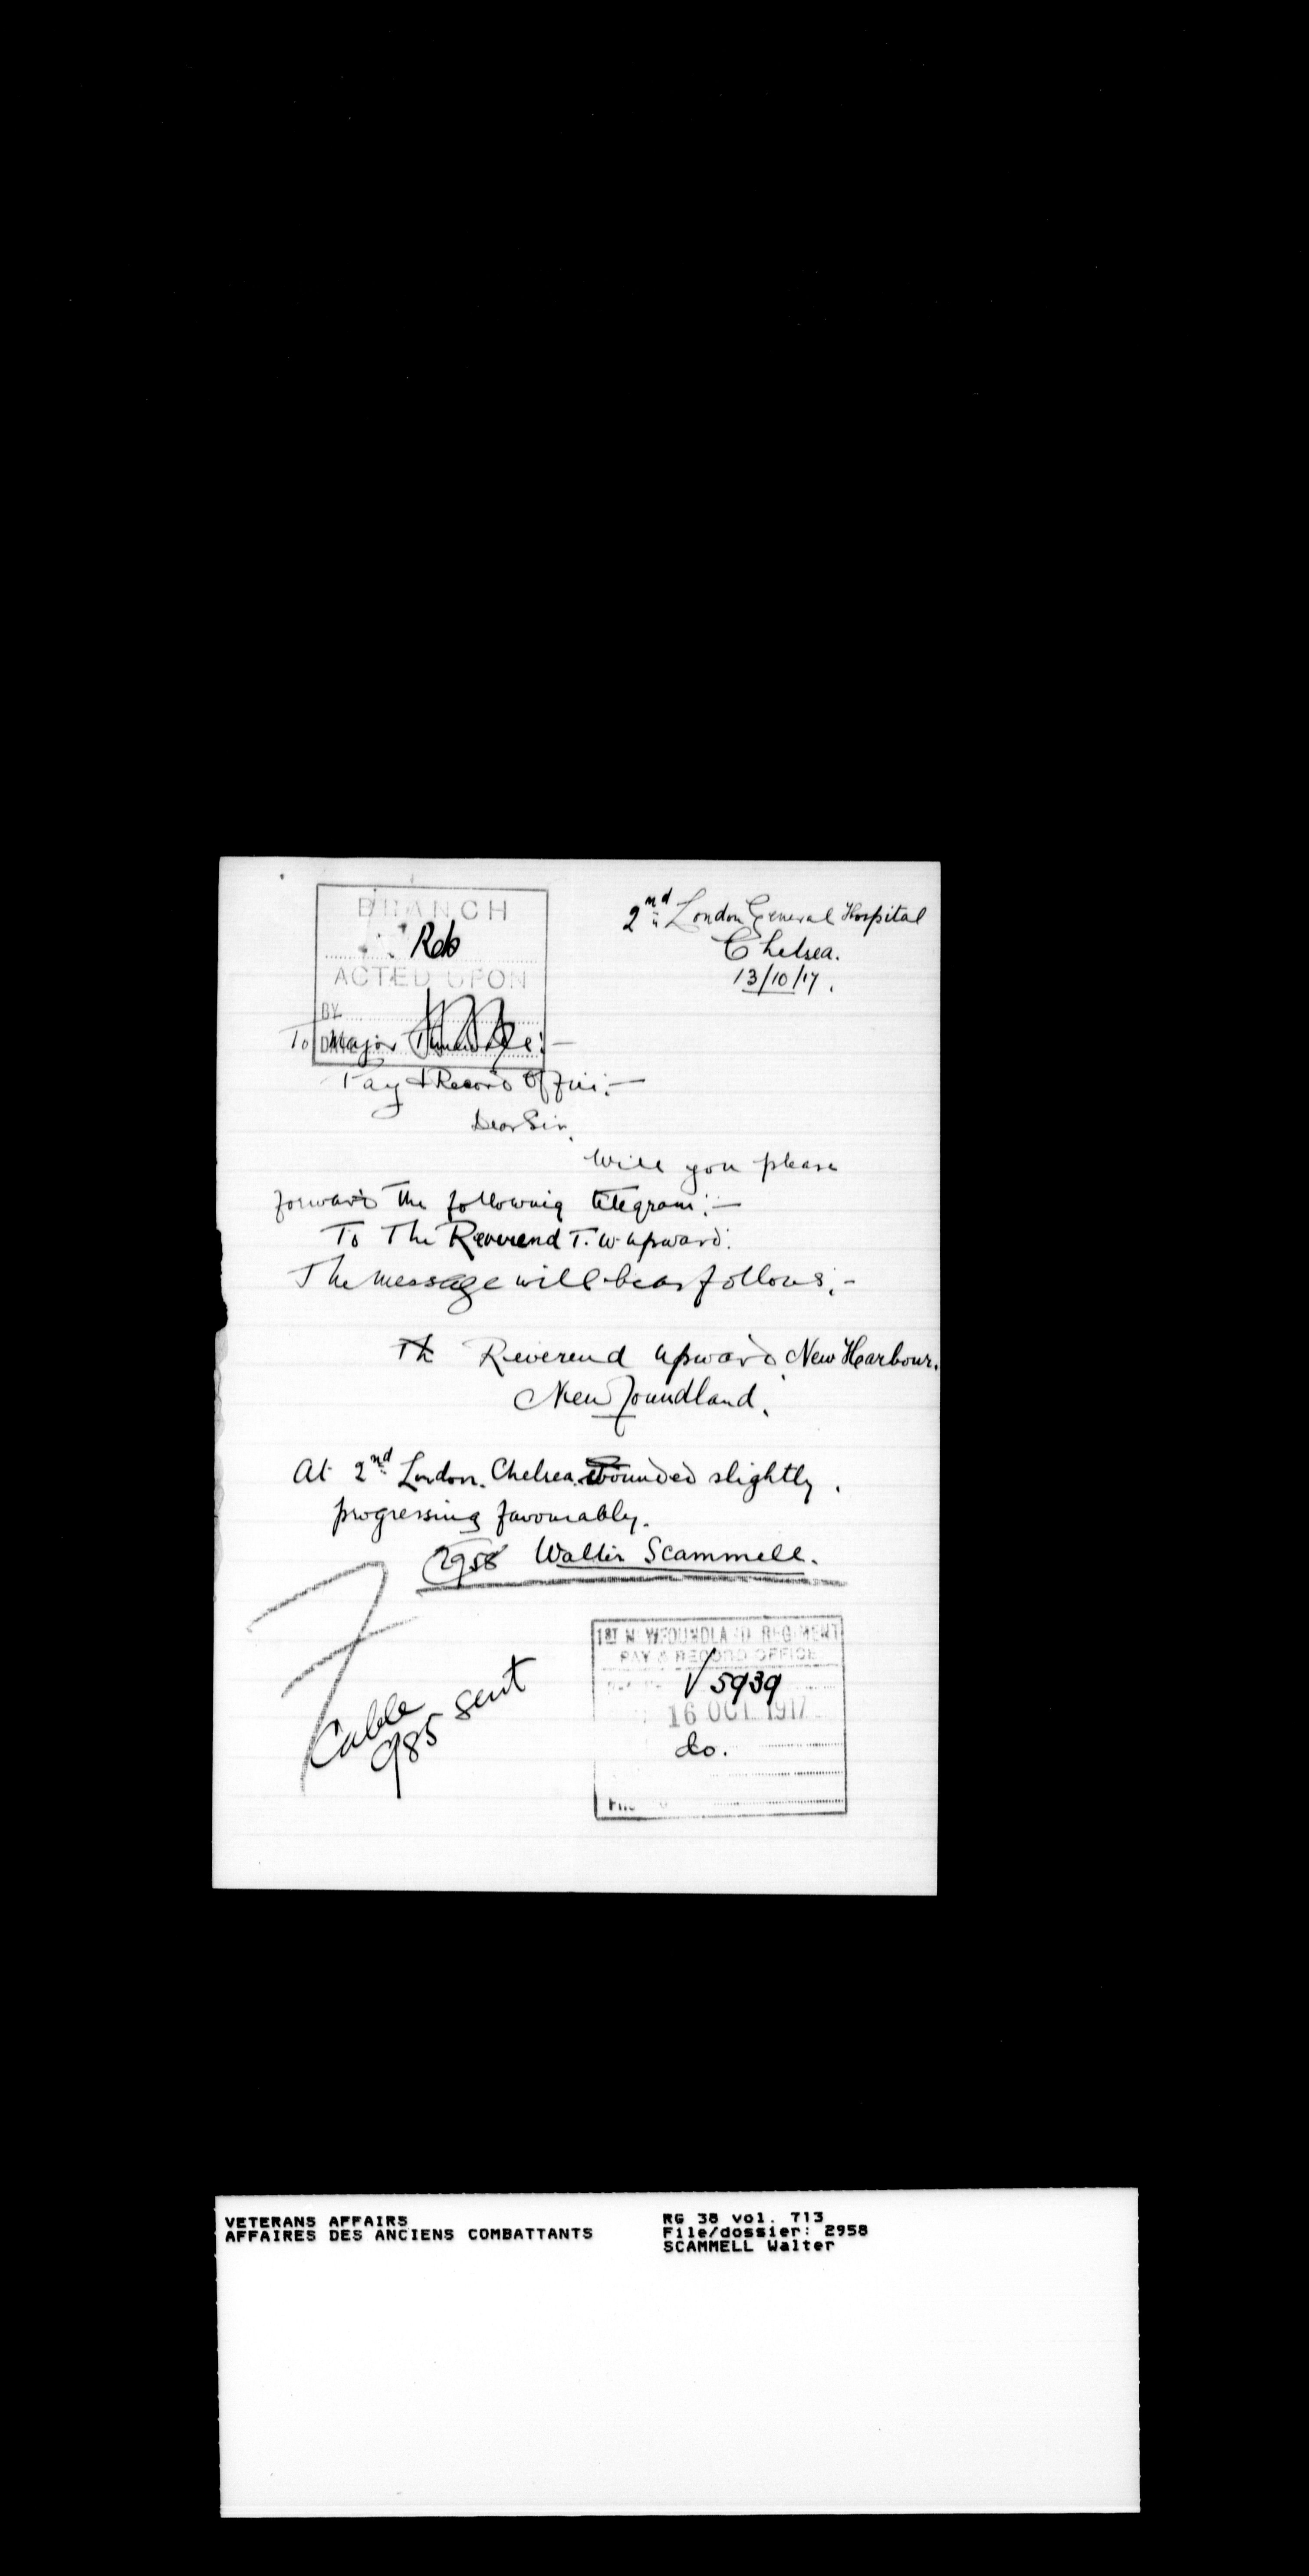 BRANCH
Rek
ACTED UPON
BY
DATE
2nd London General Hospital
Chelsea.
13/10/17.
To Major
Pay & Record Office:—
Dear Sir,
Will you please
forward the following telegram:—
To The Reverend T. W. Upward.
The message will be as follows:-
Th Reverend Upward, New Harbour.
Newfoundland.
At 2nd London. Chelsea. Wounded slightly.
progressing favourably.
2958 Walter Scammell.
Cable
985 sent
1ST NEWFOUNDLAND REGIMENT
PAY & RECORD OFFICE
√ 5939
16 OCT 1917
do.
VETERANS AFFAIRS
AFFAIRES DES ANCIENS COMBATTANTS
RG 38 vol. 713
File/dossier: 2958
SCAMMELL Walter